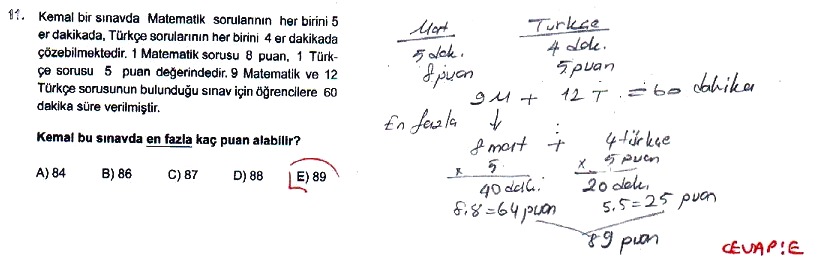 11. Kemal bir sınavda Matematik sorularının her birini 5
er dakikada, Türkçe sorularının her birini 4 er dakikada
çözebilmektedir. 1 Matematik sorusu 8 puan, 1 Türk-
çe sorusu 5 puan değerindedir. 9 Matematik ve 12
Türkçe sorusunun bulunduğu sınav için öğrencilere 60
dakika süre verilmiştir.
Kemal bu sınavda en fazla kaç puan alabilir?
A) 84 B) 86 C) 87 D) 88 E) 89
Mat Türkçe
5 dak. 4 dak.
8 puan 5 puan
9M + 12 T = 60 dakika
En fazla ↓
8 mat + 4 türkçe
x 5 x 5 puan
40 dak. 20 dak.
8.8=64 puan 5.5=25 puan
89 puan
CEVAP:E